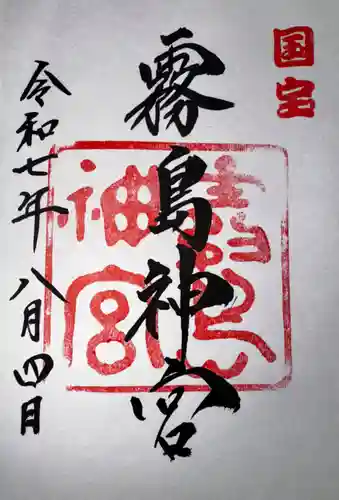 国宝
霧島神宮
霧島
神宮
令和七年 八月四日